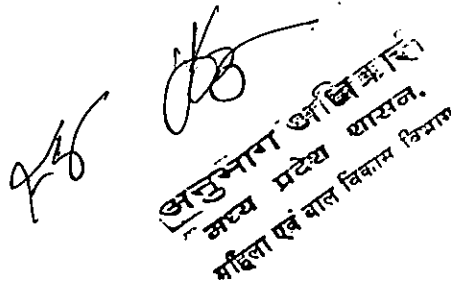 अनुभाग अधिकारी
मध्य प्रदेश शासन,
महिला एवं बाल विकास विभाग